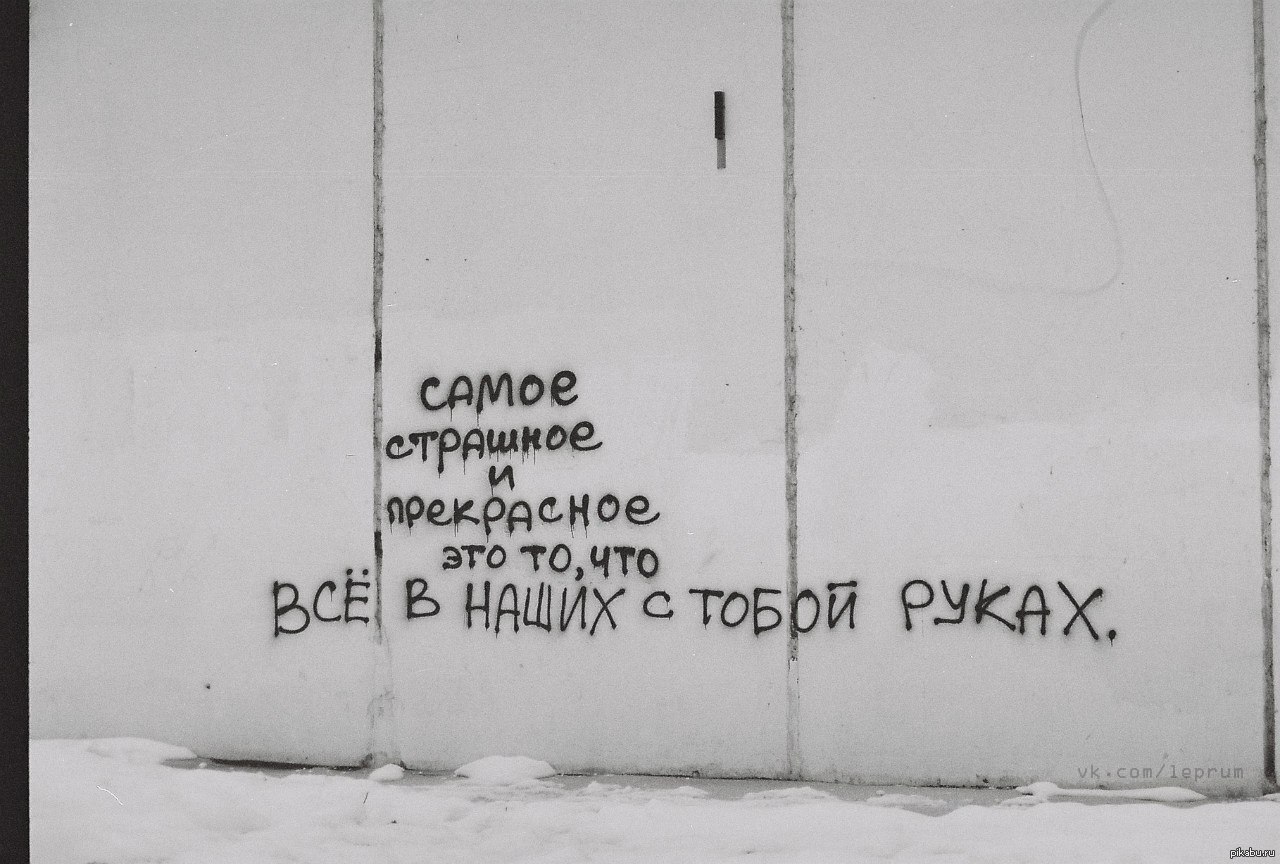 самое
страшное
и
прекрасное
это то, что
ВСЁ В НАШИХ С ТОБОЙ РУКАХ.
vk.com/leprum
pikabu.ru